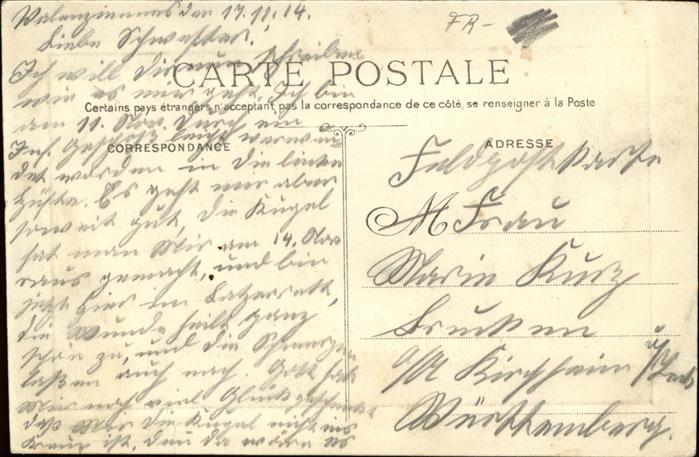 Valenziennes den 17.11.14.
Liebe Schwester!
Ich will Dir nun schreiben
wie es mir geht. Ich bin
am 11. Nov. durch ein
Inf. Geschoß leicht verwun
det worden in die linke
Hüfte. Es geht mir aber
soweit gut, die Kugel
hat man Mir am 14. Nov
raus gemacht, und bin
jetzt hier im Lazarett,
die Wunde heilt ganz
schön zu, und die Schmerzen
laßen auch nach. Gott hat
Mir noch viel Glück geschenkt
daß Mir die Kugel nicht ins
Kreuz ist, denn da wären es
FR-
CARTE POSTALE
Certains pays étrangers n'acceptant pas la correspondance de ce côté, se renseigner à la Poste
CORRESPONDANCE
ADRESSE
Feldpostkarte
M Frau
Marie Kurz
Brucken
O/A Kirchheim u/Teck
Württemberg.